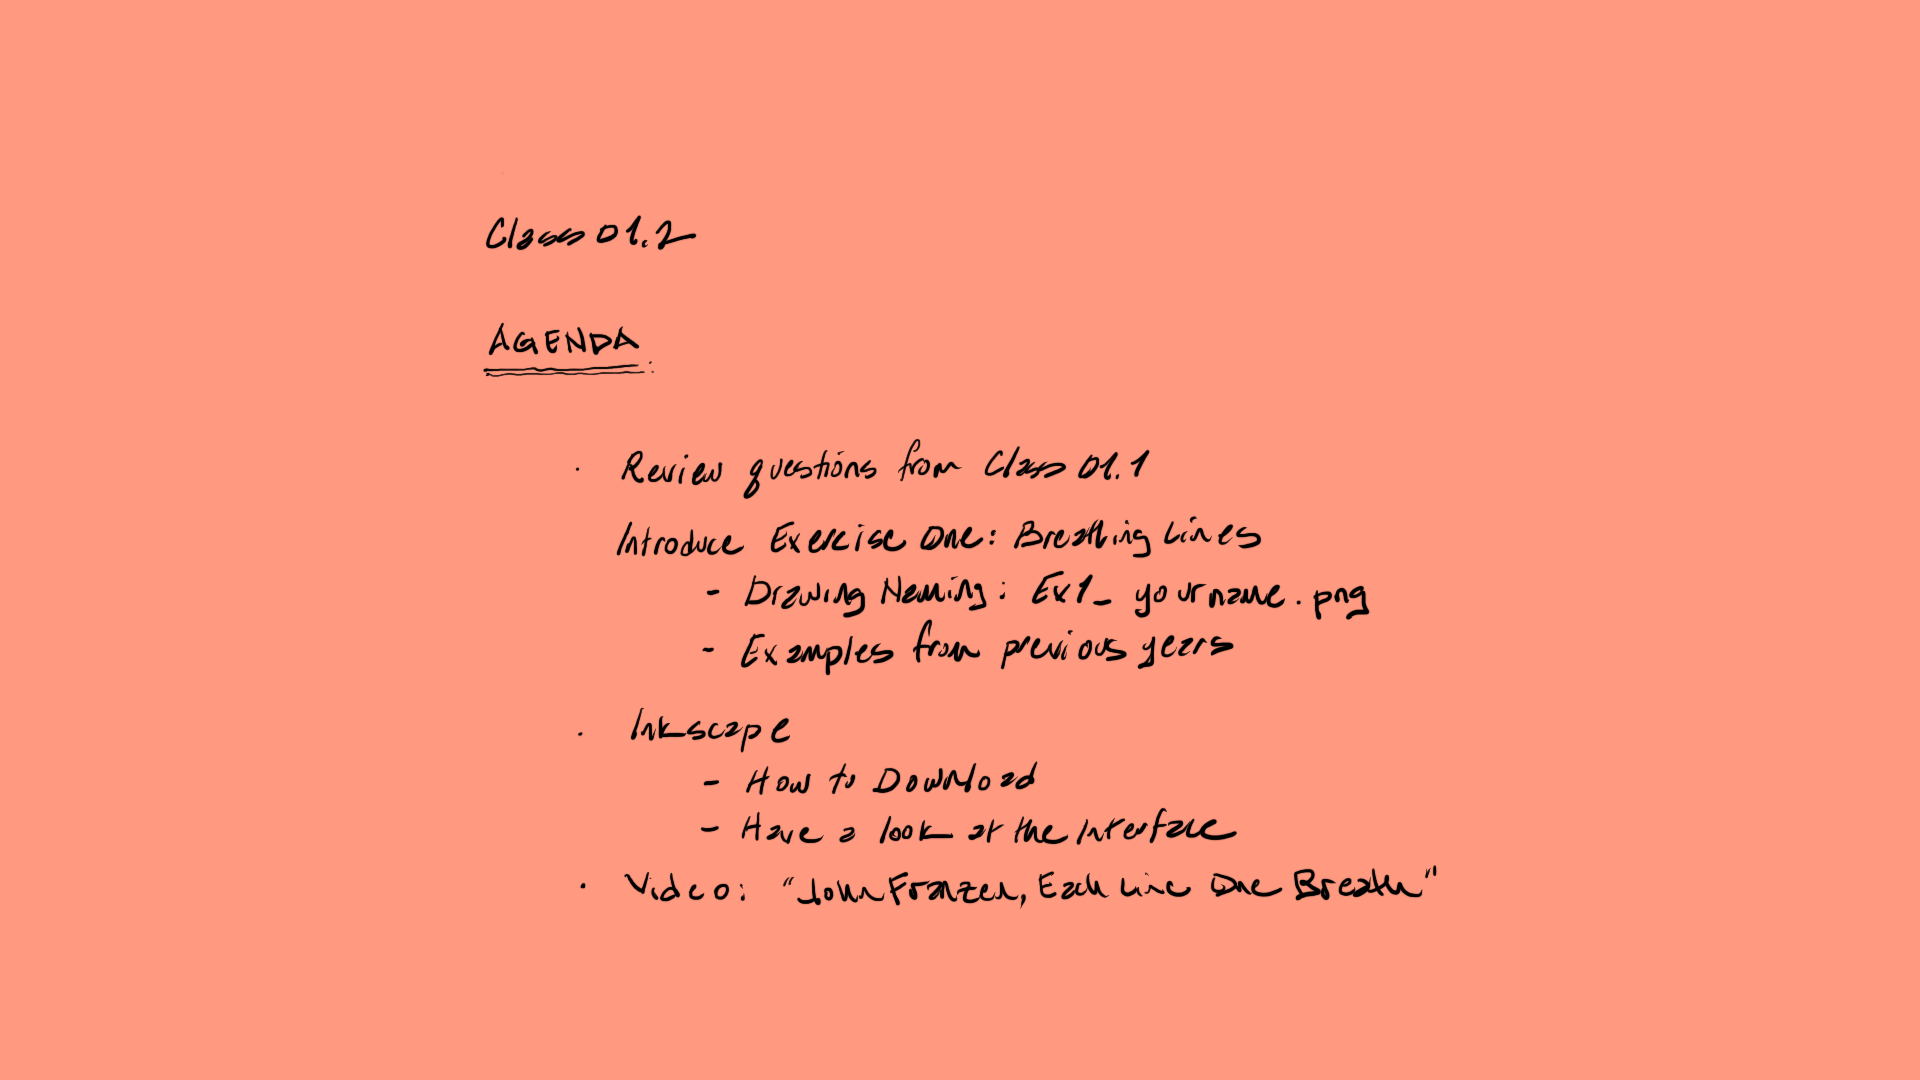 Class 01.2
AGENDA:
· Review questions from Class 01.1
Introduce Exercise One: Breathing Lines
- Drawing Naming: Ex1_yourname.png
- Examples from previous years
· Inkscape
- How to Download
- Have a look at the Interface
· Video: "John Franzen, Each Line One Breath"